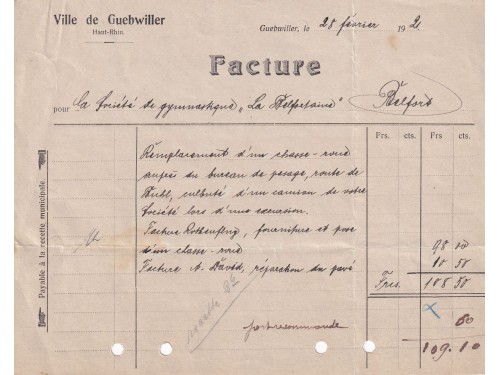 Ville de Guebwiller
Haut-Rhin.
Guebwiller, le 28 février 192
Facture
pour La Société de gymnastique „La Belfortaine" Belfort
Frs. cts. Frs. cts.
Payable à la recette municipale.
Remplacement d'un chasse-roue
auprès du bureau de pesage, route de
Buhl, culbuté d'un camion de votre
Société lors d'une excursion.
Facture Rothenflug, fourniture et pose
d'un classe-roue 98 00
Facture A. David, réparation du pavé 10 50
Frcs. 108 50
port recommandé 60
109.10